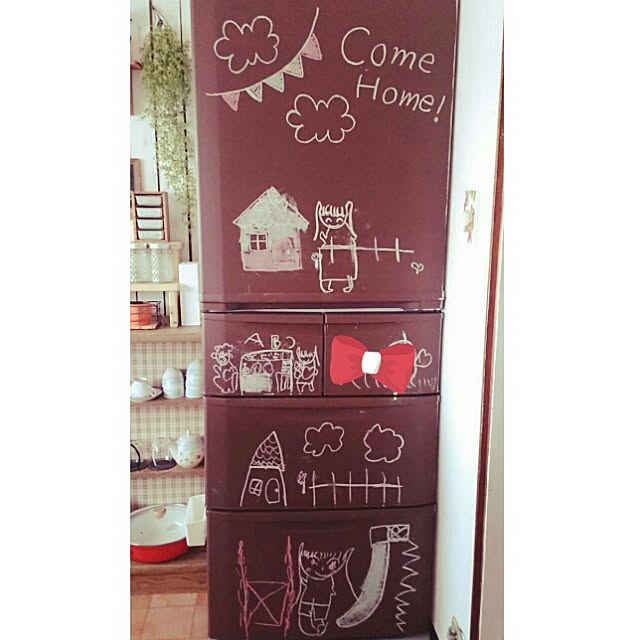 Come
Home!
A B C